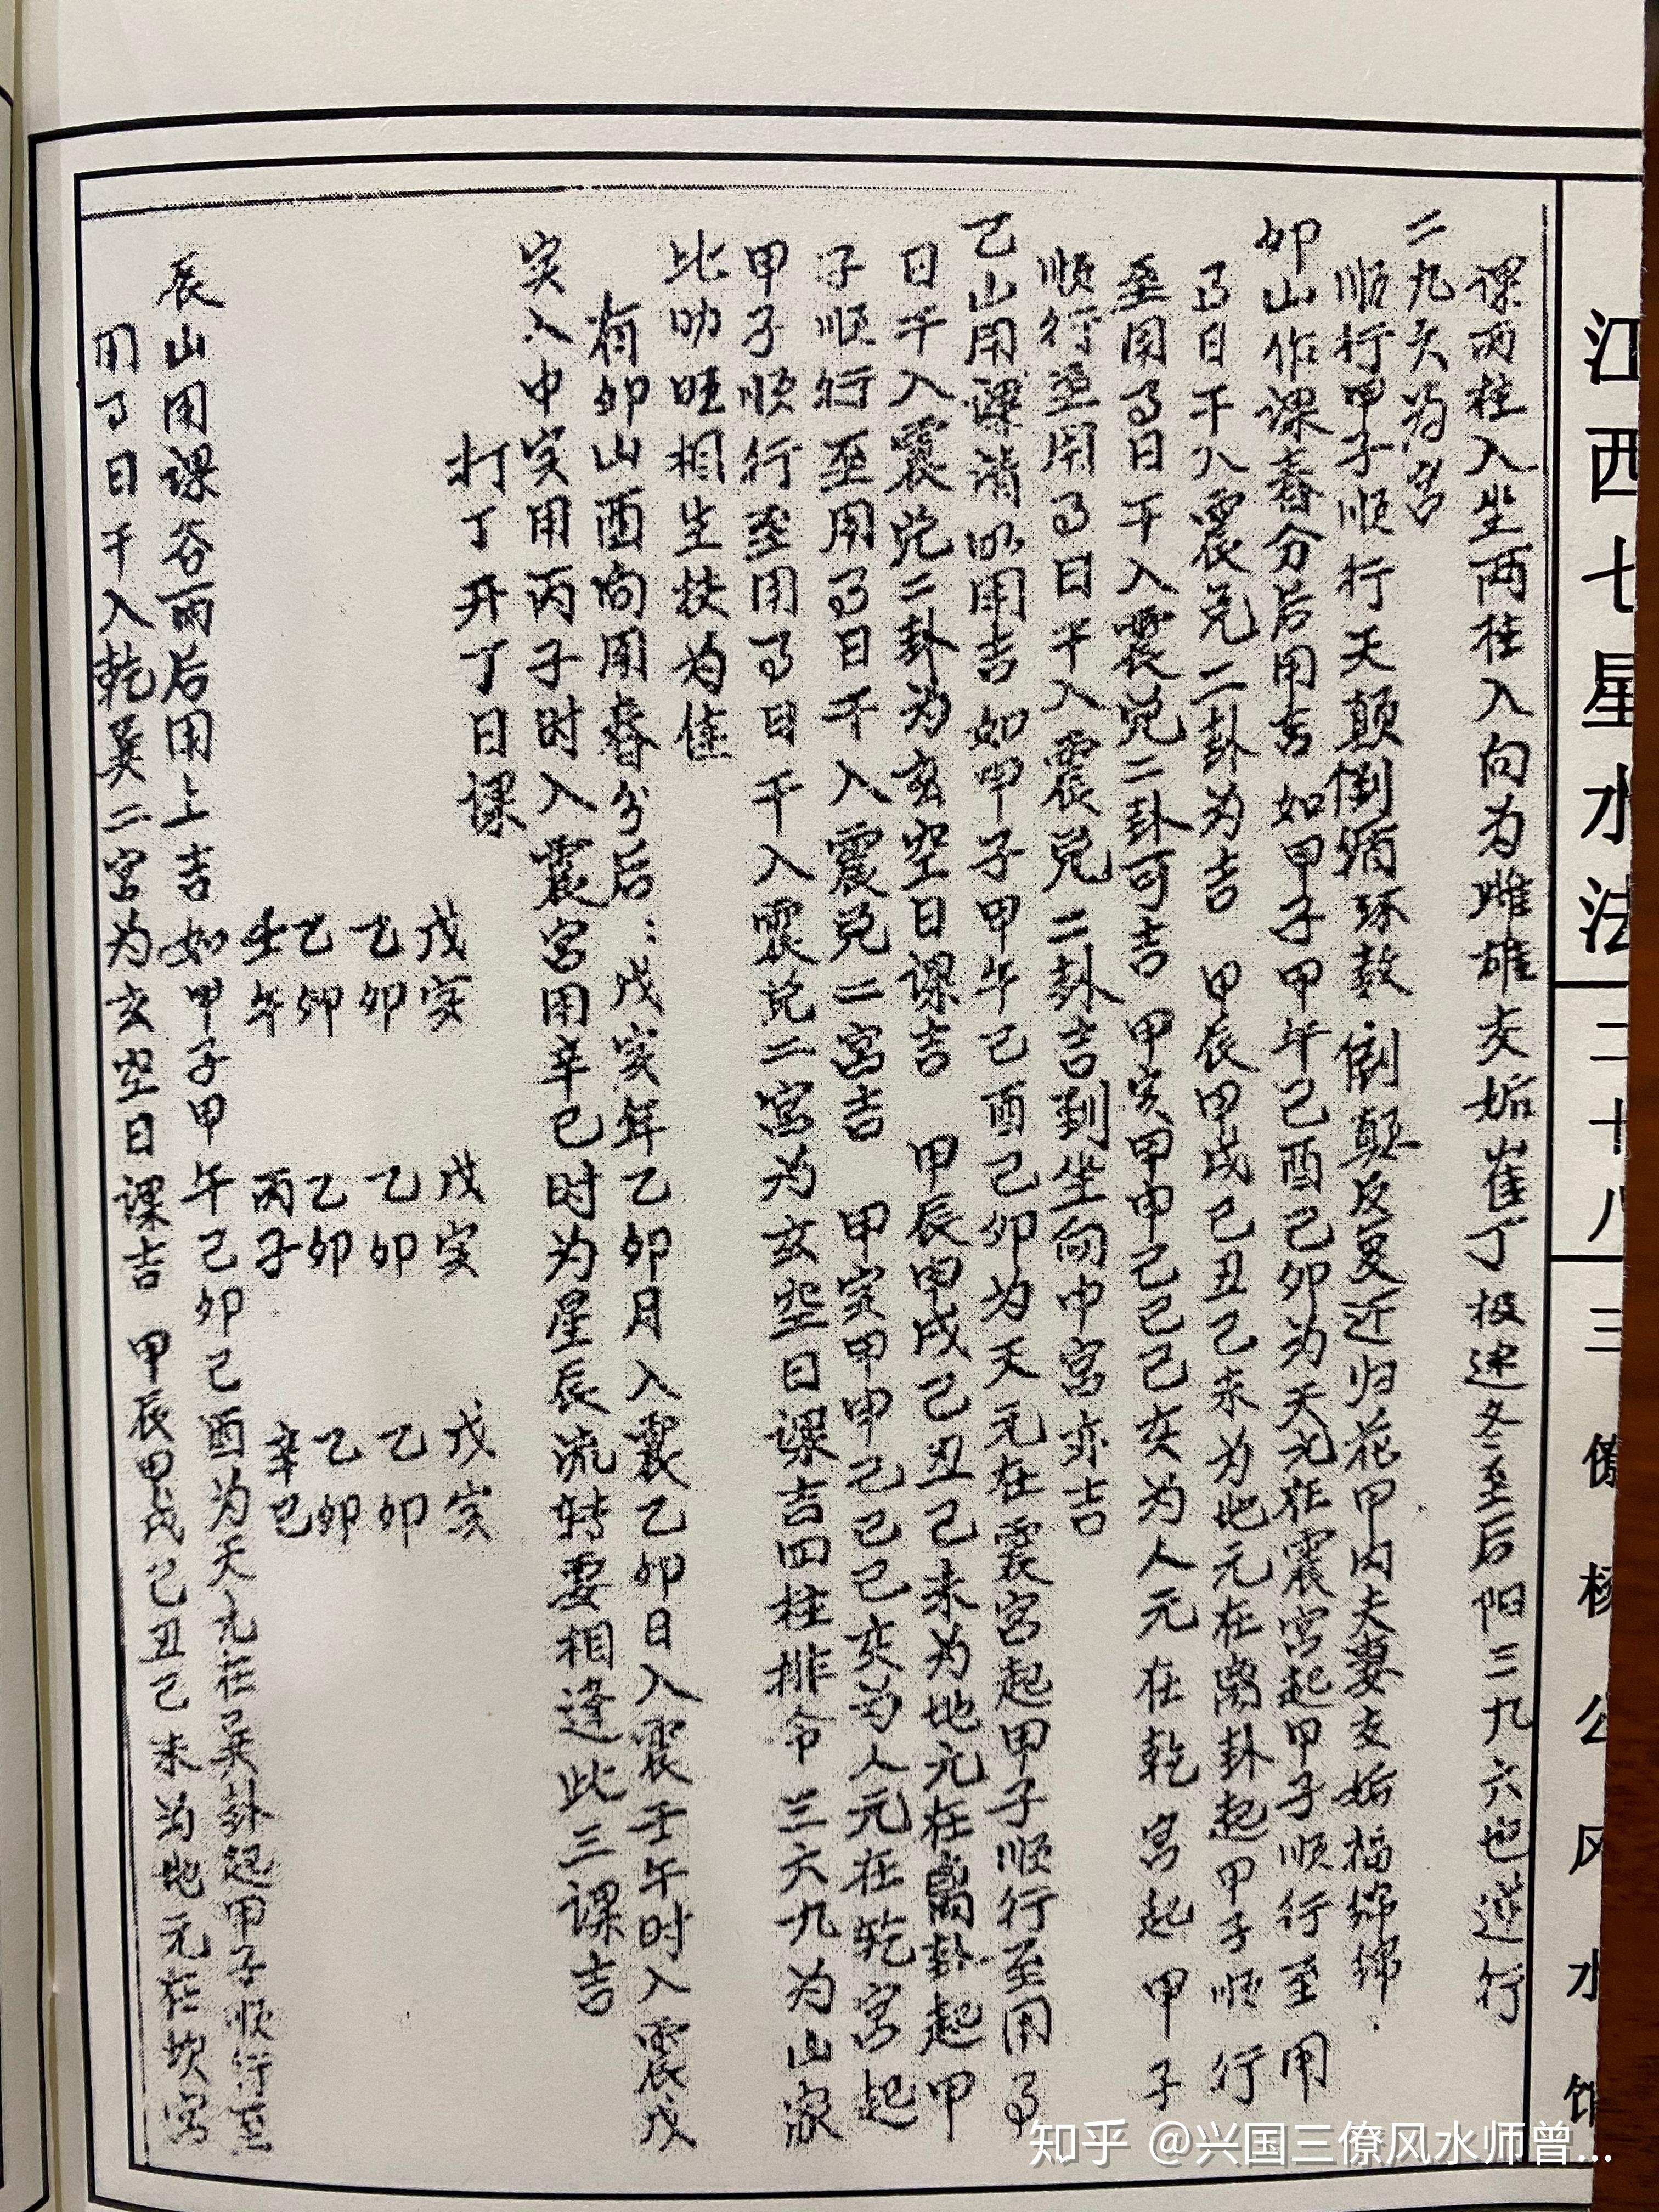 江西七星水法
二十八
三僚杨公风水馆
课两柱入坐两柱入向为雌雄交姤崔丁极速冬至后阳三九六也逆行
二九六为宫
顺行甲子顺行天颠倒循环数倒颠反复还归花甲内夫妻交姤福绵绵.
卯山作课春分后用吉如甲子甲午己酉己卯为天元在震宫起甲子顺行至用
的日干入震兑二卦为吉 甲辰甲戌己丑己未为地元在离卦起甲子顺行
至用的日干入震兑二卦可吉 甲寅甲申己巳己亥为人元在乾宫起甲子
顺行至用的日干入震兑二卦吉到坐向中宫亦吉
乙山用课清明用吉如甲子甲午己酉己卯为天元在震宫起甲子顺行至用的
日干入震兑二卦为玄空日课吉 甲辰甲戌己丑己未为地元在离卦起甲
子顺行至用的日干入震兑二宫吉 甲寅甲申己巳己亥为人元在乾宫起
甲子顺行至用的日干入震兑二宫为玄空日课吉四柱排令三六九为山家
比助旺相生扶为佳
有卯山酉向用春分后:戊寅年乙卯月入震乙卯日入震壬午时入震戊
寅入中寅用丙子时入震宫用辛巳时为星辰流转要相逢此三课吉
打丁开丁日课
戊寅 戊寅 戊寅
乙卯 乙卯 乙卯
乙卯 乙卯 乙卯
壬午 丙子 辛巳
辰山用课谷雨后用上吉如甲子甲午己卯己酉为天元在巽卦起甲子顺行至
用的日干入乾巽二宫为玄空日课吉 甲辰甲戌己丑己未为地元在坎宫
知乎 @兴国三僚风水师曾...